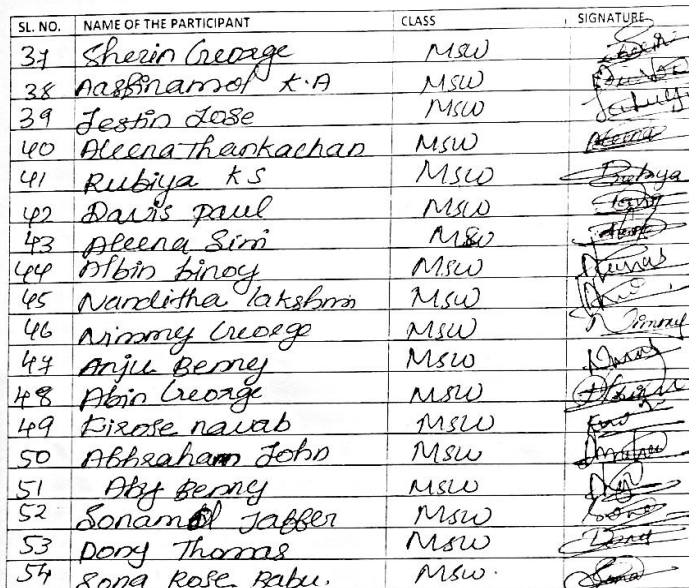 SL. NO. NAME OF THE PARTICIPANT CLASS SIGNATURE
37 Sherin George MSW
38 Aasfinamol K.A MSW
39 Jestin Jose MSW
40 Aleena Thankachan MSW Aleena
41 Rubiya KS MSW Rubiya
42 Davis paul MSW
43 Aleena Simi MSW
44 Albin binoy MSW
45 Nanditha lakshmi MSW
46 Nimmy George MSW Nimmy
47 Anju Benny MSW
48 Abin George MSW
49 Firose navab MSW
50 Abhraham John MSW
51 Aby Benny MSW
52 Sonamol Jaffer MSW Sona
53 Dony Thomas MSW Dony
54 Sona Rose Babu. MSW. Sona